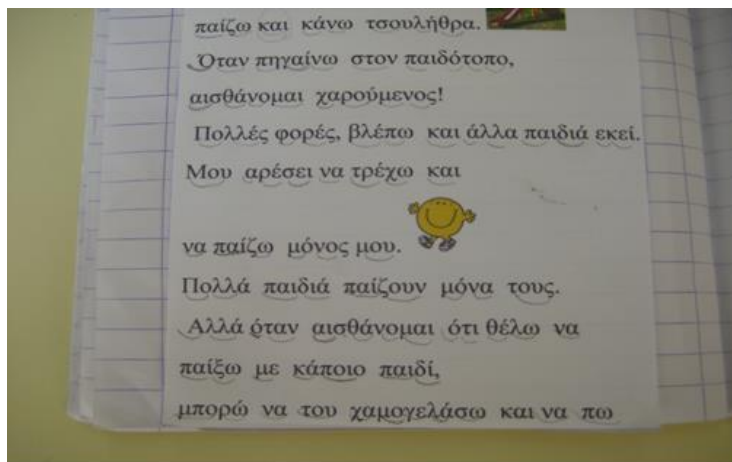 παίζω και κάνω τσουλήθρα.
Όταν πηγαίνω στον παιδότοπο,
αισθάνομαι χαρούμενος!
Πολλές φορές, βλέπω και άλλα παιδιά εκεί.
Μου αρέσει να τρέχω και
να παίζω μόνος μου.
Πολλά παιδιά παίζουν μόνα τους.
Αλλά όταν αισθάνομαι ότι θέλω να
παίξω με κάποιο παιδί,
μπορώ να του χαμογελάσω και να πω